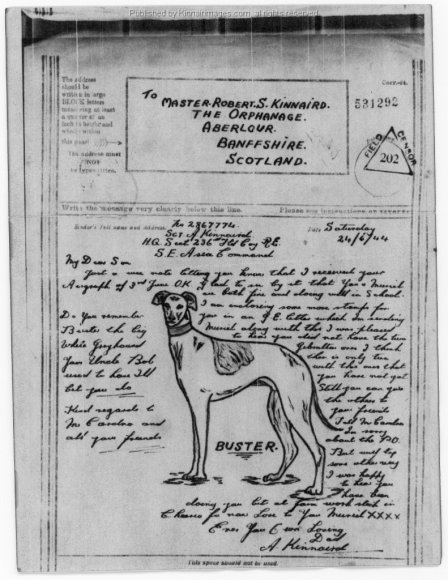 Published by Kinnairdimages.com all rights reserved
The address
should be
written in large
BLOCK letters
measuring at least
a quarter of an
inch in height and
wholly within
this panel
The address must
NOT
be typewritten.
To
MASTER.ROBERT.S.KINNAIRD.
THE ORPHANAGE.
ABERLOUR.
BANFFSHIRE.
SCOTLAND.
531292
FIELD CENSOR
202
Write the message very clearly below this line.
Please see instructions on reverse
Sender's full name and address
No 2867774.
Sgt. A Kinnaird
HQ Sect 236 Fld Coy R.E.
S.E. Asia Command
Date Saturday
24/6/44
My Dear Son
Just a wee note letting you know that I received your
Airgraph of 3rd June O.K. Glad to see by it that You & Muriel
are both fine and doing well in School.
I am enclosing some more stamps for
you in an letter which Im sending
Muriel along with this I was pleased
to hear you did not have the two
Gibraltar ones I think
this is only two
with this ones that
you have not got
Still you can give
the others to
your friends
Tell Mr Cardno
Im sorry
about the P.O.
But well try
some other way
I was happy
to hear you
have been
doing your bit at farm work stick in
Cheerio for now Love to You Muriel XXXX
Ever Your Own Loving
Dad
A Kinnaird
Do You remember
Buster the big
White Greyhound
Your Uncle Bob
used to have I'll
bet you do
Kind regards to
Mr Cardno and
all your friends
BUSTER.
This space should not be used.